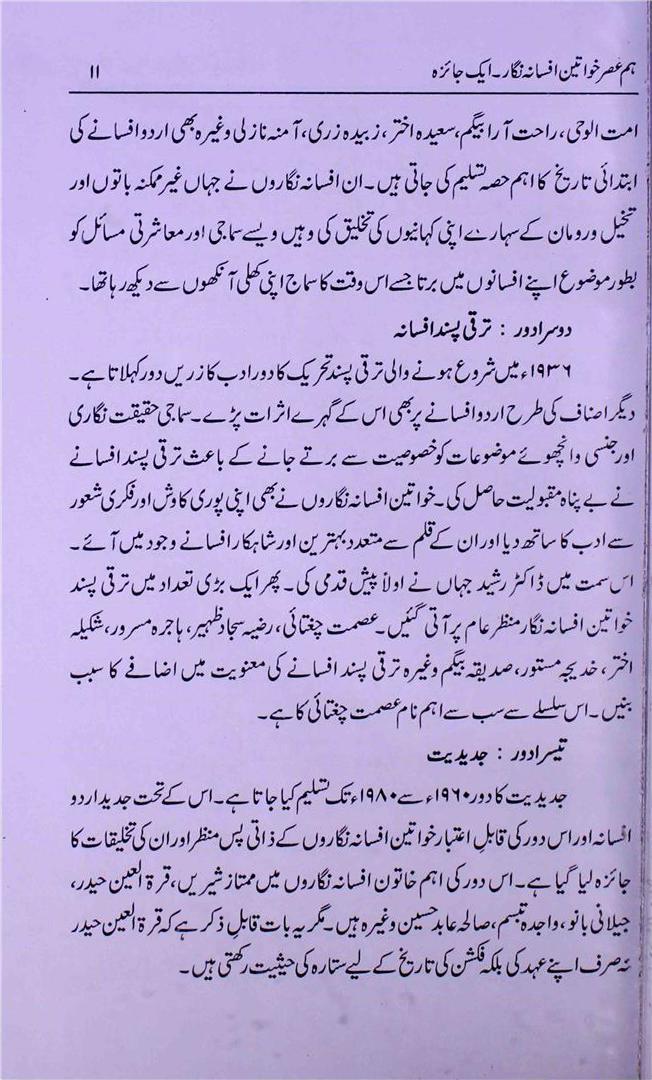 ہم عصر خواتین افسانہ نگار۔ ایک جائزہ ۱۱
امت الوحی، راحت آرا بیگم، سعیدہ اختر، زبیدہ زری، آمنہ نازلی وغیرہ بھی اردو افسانے کی
ابتدائی تاریخ کا اہم حصہ تسلیم کی جاتی ہیں۔ ان افسانہ نگاروں نے جہاں غیر ممکنہ باتوں اور
تخیل و رومان کے سہارے اپنی کہانیوں کی تخلیق کی وہیں ویسے سماجی اور معاشرتی مسائل کو
بطور موضوع اپنے افسانوں میں برتا جسے اس وقت کا سماج اپنی کھلی آنکھوں سے دیکھ رہا تھا۔
دوسرا دور : ترقی پسند افسانہ
۱۹۳۶ء میں شروع ہونے والی ترقی پسند تحریک کا دور ادب کا زریں دور کہلاتا ہے۔
دیگر اصناف کی طرح اردو افسانے پر بھی اس کے گہرے اثرات پڑے۔ سماجی حقیقت نگاری
اور جنسی و انچھوئے موضوعات کو خصوصیت سے برتے جانے کے باعث ترقی پسند افسانے
نے بے پناہ مقبولیت حاصل کی۔ خواتین افسانہ نگاروں نے بھی اپنی پوری کاوش اور فکری شعور
سے ادب کا ساتھ دیا اور ان کے قلم سے متعدد بہترین اور شاہکار افسانے وجود میں آئے۔
اس سمت میں ڈاکٹر رشید جہاں نے اولاً پیش قدمی کی۔ پھر ایک بڑی تعداد میں ترقی پسند
خواتین افسانہ نگار منظر عام پر آتی گئیں۔ عصمت چغتائی، رضیہ سجاد ظہیر، ہاجرہ مسرور، شکیلہ
اختر، خدیجہ مستور، صدیقہ بیگم وغیرہ ترقی پسند افسانے کی معنویت میں اضافے کا سبب
بنیں۔ اس سلسلے سے سب سے اہم نام عصمت چغتائی کا ہے۔
تیسرا دور : جدیدیت
جدیدیت کا دور ۱۹۶۰ء سے ۱۹۸۰ء تک تسلیم کیا جاتا ہے۔ اس کے تحت جدید اردو
افسانہ اور اس دور کی قابلِ اعتبار خواتین افسانہ نگاروں کے ذاتی پس منظر اور ان کی تخلیقات کا
جائزہ لیا گیا ہے۔ اس دور کی اہم خاتون افسانہ نگاروں میں ممتاز شیریں، قرۃ العین حیدر،
جیلانی بانو، واجدہ تبسم، صالحہ عابد حسین وغیرہ ہیں۔ مگر یہ بات قابلِ ذکر ہے کہ قرۃ العین حیدر
نہ صرف اپنے عہد کی بلکہ فکشن کی تاریخ کے لیے ستارہ کی حیثیت رکھتی ہیں۔